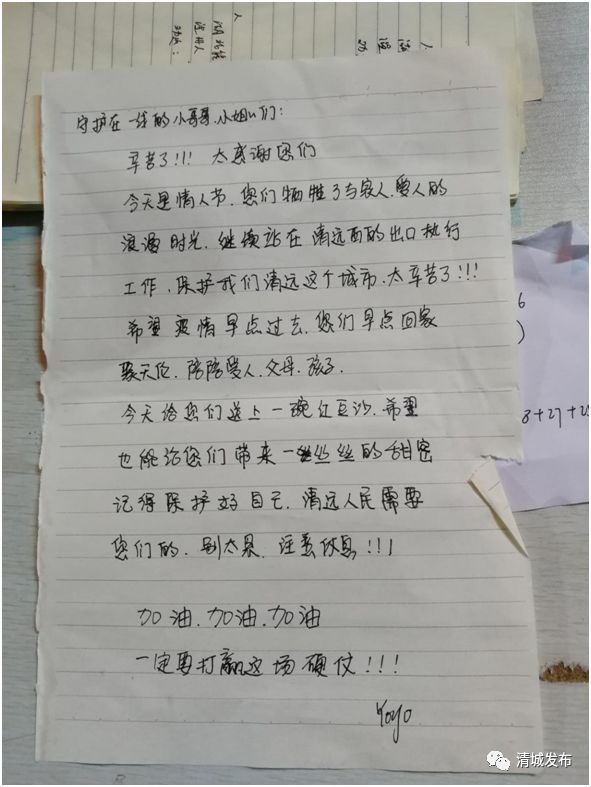 人
湖北
注册人
功
人
功
守护在一线的小哥哥.小姐姐们:
辛苦了!!! 太感谢您们
今天是情人节.您们牺牲了与家人.爱人的
浪漫时光.继续站在清远西的出口执行
工作.保护我们清远这个城市.太辛苦了!!!
希望疫情早点过去.您们早点回家
聚天伦.陪陪爱人.父母.孩子.
今天给您们送上一碗红豆沙.希望
也能给您们带来一丝丝的甜密
记得保护好自己.清远人民需要
您们的.别太累.注意休息!!!
加油.加油.加油
一定要打赢这场硬仗!!!
Yoyo
6
)
8+27+2
清城发布